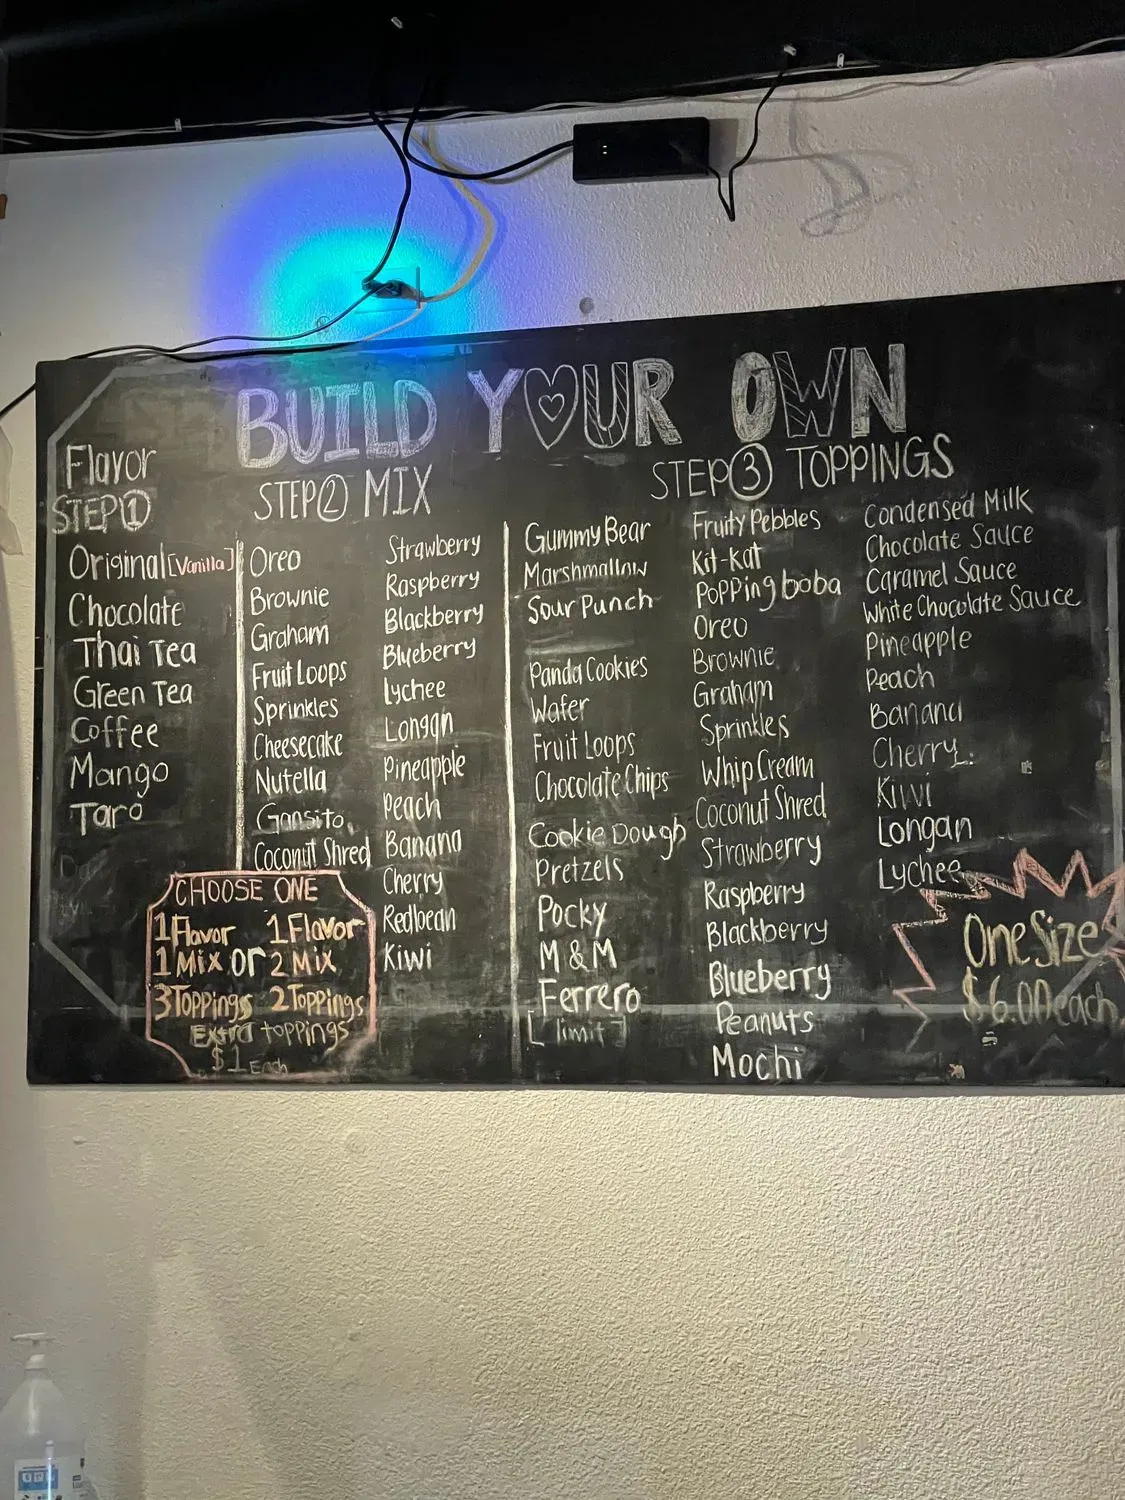 BUILD YOUR OWN
Flavor
STEP 1
Original [Vanilla]
Chocolate
Thai Tea
Green Tea
Coffee
Mango
Taro
STEP 2 MIX
Oreo
Brownie
Graham
Fruit Loops
Sprinkles
Cheesecake
Nutella
Gansito
Coconut Shred
Strawberry
Raspberry
Blackberry
Blueberry
Lychee
Longan
Pineapple
Peach
Banana
Cherry
Redbean
Kiwi
CHOOSE ONE
1 Flavor 1 Flavor
1 Mix or 2 Mix
3 Toppings 2 Toppings
Extra toppings
$1 Each
STEP 3 TOPPINGS
Gummy Bear
Marshmallow
Sour Punch
Panda Cookies
Wafer
Fruit Loops
Chocolate Chips
Cookie Dough
Pretzels
Pocky
M & M
Ferrero
[limit]
Fruity Pebbles
Kit-Kat
Popping boba
Oreo
Brownie
Graham
Sprinkles
Whip Cream
Coconut Shred
Strawberry
Raspberry
Blackberry
Blueberry
Peanuts
Mochi
Condensed Milk
Chocolate Sauce
Caramel Sauce
White Chocolate Sauce
Pineapple
Peach
Banana
Cherry
Kiwi
Longan
Lychee
One Size
$6.00 each